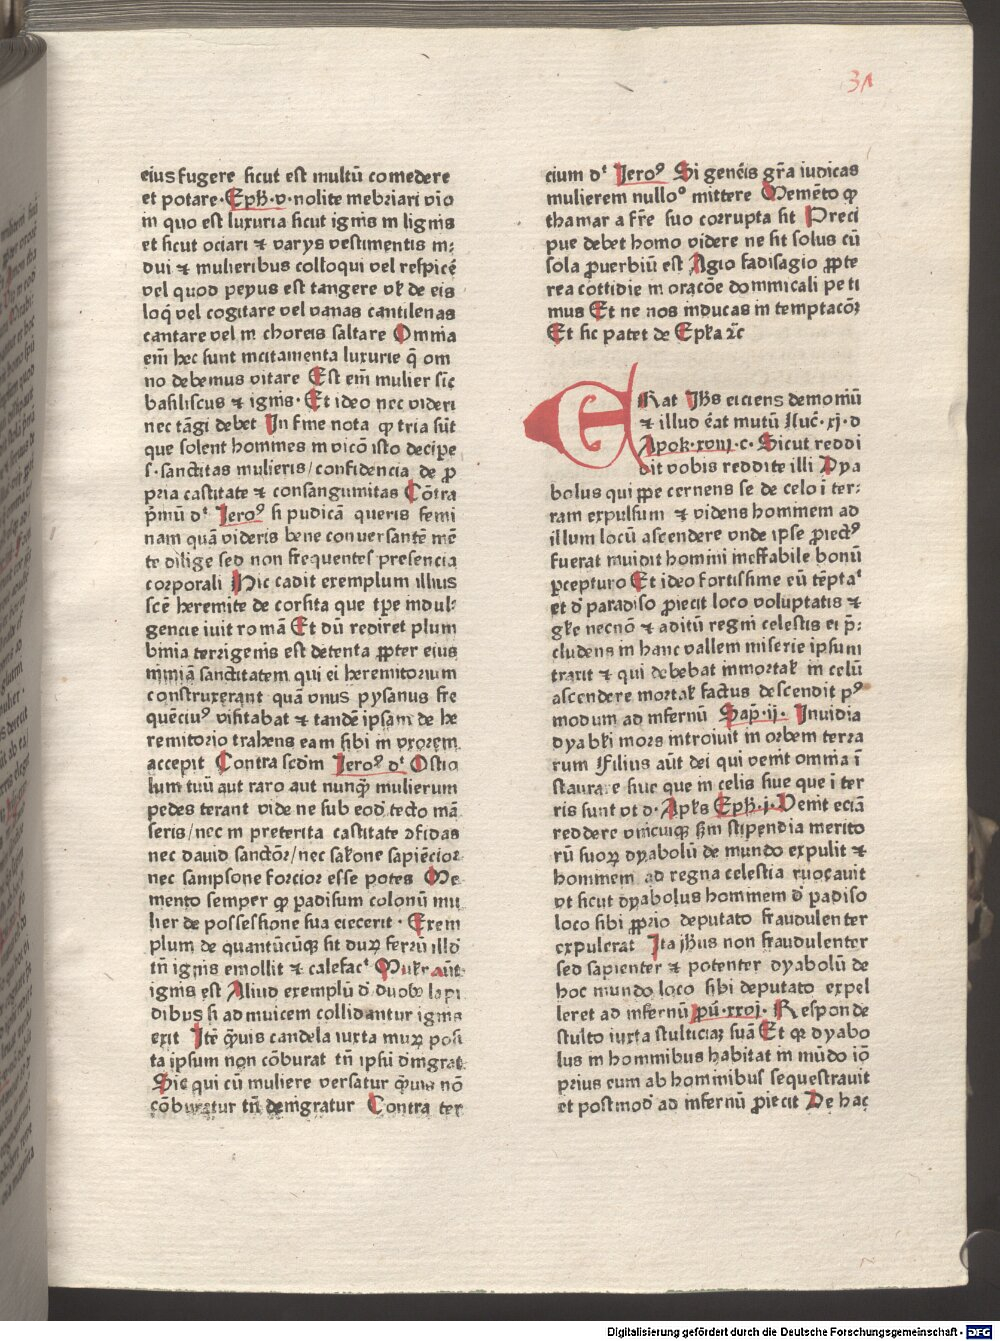 31
eius fugere sicut est multū comedere
et potare· Eph̄·v·nolite inebriari vīo
in quo est luxuria sicut ignis in lignis
et sicut ociari ⁊ varys vestimentis in⸗
dui ⁊ mulieribus colloqui vel respicē
vel quod peyus est tangere vl̄ de eis
loq̄ vel cogitare vel vanas cantilenas
cantare vel in choreis saltare Omnia
em̄ hec sunt incitamenta luxurie q̄ om
no debemus vitare Est em̄ mulier sic̄
basiliscus ⁊ ignis· Et ideo nec videri
nec tāgi debet In fine nota ꝙ tria sūt
que solent homines in vicō isto decipe
s·sanctitas mulieris/confidencia de ꝓ
pria castitate ⁊ consanguinitas Cōtra
p̄mū dᵗ Jeroꝰ si pudicā queris femi
nam quā videris bene conuersantē mē
te dilige sed non frequentes presencia
corporali Hic cadit exemplum illius
scē heremite de corsica que tp̄e indul⸗
gencie iuit romā Et dū rediret plum
binia terrigenis est detenta ꝓpter eius
nimiā sanctitatem qui ei heremitorium
construxerant quā vnus pysanus fre
quēciuꝰ visitabat ⁊ tandē ipsam de he
remitorio trahens eam sibi in vxorem
accepit Contra scdm̄ Jeroꝰ dᵗ Ostio
lum tuū aut raro aut nunꝙ̄ mulierum
pedes terant vide ne sub eod̄ tecto mā
seris/nec in preterita castitate ↄfidas
nec dauid sanctōr/nec salomone sapiēcior
nec sampsone forcior esse potes Me
mento semper ꝙ padisum colonū mu
lier de possessione sua eiecerit · Exem
plum de quantūcūqꝫ sit duꝝ ferrū illd̄
tn̄ ignis emollit ⁊ calefacᵗ Mulier aūt
ignis est Aliud exemplū d̄ duobꝰ lapi
dibus si ad inuicem collidantur ignis
exit Itē ꝙ̄uis candela iuxta murꝝ posi
ta ipsum non cōburat tn̄ ipsū d̄nigrat
Sic qui cū muliere versatur ꝙ̄uis nō
cōburatur tn̄ denigratur Contra ter
cium dᵗ Jeroꝰ Si genēis gr̄a iudicas
mulierem nulloᵒ mittere Memēto ꝙ
thamar a fr̄e suo corrupta sit Preci
pue debet homo videre ne sit solus cū
sola ꝓuerbiū est Agio fadisagio ꝓpte
rea cottidie in orac̄oe dominicali peti
mus Et ne nos inducas in temptacōꝫ
Et sic patet de Epl̄a ⁊c̄
ERat Jhs̄ eiciens demoniū
⁊ illud ēat mutū Luc̄·xj·d
Apok·xviij·c·Sicut reddi
dit vobis reddite illi Dya
bolus qui ꝓpe cernens se de celo ī ter⸗
ram expulsum ⁊ videns hominem ad
illum locū ascendere vnde ipse ꝓiectꝰ
fuerat inuidit homini ineffabile bonū
ꝑcepturo Et ideo fortissime eū tēptaᵗ
et d̄ paradiso ꝓiecit loco voluptatis ⁊
gl̄ie necnō ⁊ aditū regni celestis ei p̄⸗
cludens in hanc vallem miserie ipsum
traxit ⁊ qui debebat inmortal' in celū
ascendere mortal' factus descendit pꝰ
modum ad infernū Sap̄·ij· Inuidia
dyabli mors introiuit in orbem terra
rum Filius aūt dei qui venit omnia ī
staurare siue que in celis siue que ī ter
ris sunt vt d·Apl̄s Eph̄·j·Venit eciā
reddere vnicuiqꝫ s̄m stipendia merito
rū suoꝝ dyabolū de mundo expulit ⁊
hominem ad regna celestia reuocauit
vt sicut dyabolus hominem d̄ padiso
loco sibi ꝓprio deputato fraudulenter
expulerat Ita jhūs non fraudulenter
sed sapienter ⁊ potenter dyabolū de
hoc mundo loco sibi deputato expel
leret ad infernū ꝓū·xxvj· Responde
stulto iuxta stulticiaꝫ suā Et qꝛ dyabo
lus in hominibus habitat in mūdo iō
prius eum ab hominibus sequestrauit
et postmod̄ ad infernū ꝓiecit De hac
Digitalisierung gefördert durch die Deutsche Forschungsgemeinschaft - DFG